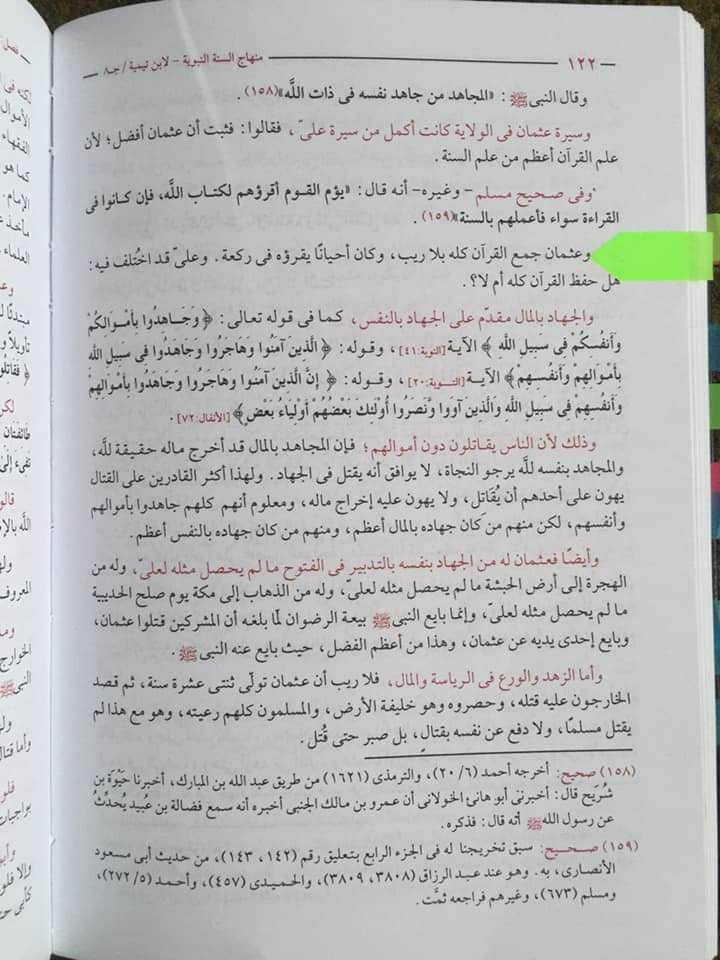 — ١٢٢ منهاج السنة النبوية - لابن تيمية / جـ٨ —
وقال النبى ﷺ : «المجاهد من جاهد نفسه فى ذات اللَّه»(١٥٨) .
وسيرة عثمان فى الولاية كانت أكمل من سيرة علىّ ، فقالوا : فثبت أن عثمان أفضل؛ لأن
علم القرآن أعظم من علم السنة .
وفى صحيح مسلم - وغيره- أنه قال : «يؤم القوم أقرؤهم لكتاب اللَّه، فإن كانوا فى
القراءة سواء فأعملهم بالسنة»(١٥٩) .
وعثمان جمع القرآن كله بلا ريب، وكان أحيانًا يقرؤه فى ركعة . وعلىّ قد اختُلف فيه :
هل حفظ القرآن كله أم لا؟ .
والجهاد بالمال مقدّم على الجهاد بالنفس، كما فى قوله تعالى : ﴿ وَجَاهِدُوا بِأَمْوَالِكُمْ
وَأَنفُسِكُمْ فِى سَبِيلِ اللَّهِ ﴾ الآية [التوبة:٤١] ، وقوله : ﴿ الَّذِينَ آمَنُوا وَهَاجَرُوا وَجَاهَدُوا فِى سَبِيلِ اللَّهِ
بِأَمْوَالِهِمْ وَأَنفُسِهِمْ﴾ الآية [التوبة:٢٠] ، وقوله : ﴿ إِنَّ الَّذِينَ آمَنُوا وَهَاجَرُوا وَجَاهَدُوا بِأَمْوَالِهِمْ
وَأَنفُسِهِمْ فِى سَبِيلِ اللَّهِ وَالَّذِينَ آوَوا وَّنَصَرُوا أُولَئِكَ بَعْضُهُمْ أَوْلِيَاءُ بَعْضٍ﴾ [الأنفال:٧٢] .
وذلك لأن الناس يقاتلون دون أموالهم؛ فإن المجاهد بالمال قد أخرج ماله حقيقة للَّه،
والمجاهد بنفسه للَّه يرجو النجاة، لا يوافق أنه يقتل فى الجهاد. ولهذا أكثر القادرين على القتال
يهون على أحدهم أن يُقَاتل، ولا يهون عليه إخراج ماله، ومعلوم أنهم كلهم جاهدوا بأموالهم
وأنفسهم، لكن منهم من كان جهاده بالمال أعظم، ومنهم من كان جهاده بالنفس أعظم.
وأيضًا فعثمان له من الجهاد بنفسه بالتدبير فى الفتوح ما لم يحصل مثله لعلىّ، وله من
الهجرة إلى أرض الحبشة ما لم يحصل مثله لعلىّ، وله من الذهاب إلى مكة يوم صلح الحديبية
ما لم يحصل مثله لعلىّ، وإنما بايع النبى ﷺ بيعة الرضوان لمَّا بلغه أن المشركين قتلوا عثمان،
وبايع إحدى يديه عن عثمان، وهذا من أعظم الفضل، حيث بايع عنه النبى ﷺ .
وأما الزهد والورع فى الرياسة والمال، فلا ريب أن عثمان تولّى ثنتى عشرة سنة، ثم قصد
الخارجون عليه قتله، وحصروه وهو خليفة الأرض، والمسلمون كلهم رعيته، وهو مع هذا لم
يقتل مسلمًا، ولا دفع عن نفسه بقتالٍ، بل صبر حتى قُتل .
(١٥٨) صحيح: أخرجه أحمد (٢٠/٦)، والترمذى (١٦٢١) من طريق عبد الله بن المبارك، أخبرنا حَيْوَة بن
شُرَيح قال: أخبرنى أبو هانئ الخولانى أن عمرو بن مالك الجنبى أخبره أنه سمع فضالة بن عُبيد يُحدِّثُ
عن رسول اللهﷺ أنه قال: فذكره.
(١٥٩) صحيح: سبق تخريجنا له فى الجزء الرابع بتعليق رقم (١٤٢، ١٤٣)، من حديث أبى مسعود
الأنصارى، به. وهو عند عبد الرزاق (٣٨٠٨، ٣٨٠٩)، والحميدى (٤٥٧)، وأحمد (٢٧٢/٥)،
ومسلم (٦٧٣)، وغيرهم فراجعه ثمَّت.